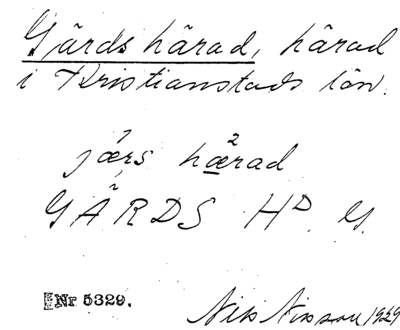 Gärds härad, härad
i Kristianstads län.
jæ̂rs hæ̂rad
GÄRDS HD. G.
Nr 5329.
Nils Nilsson 1929